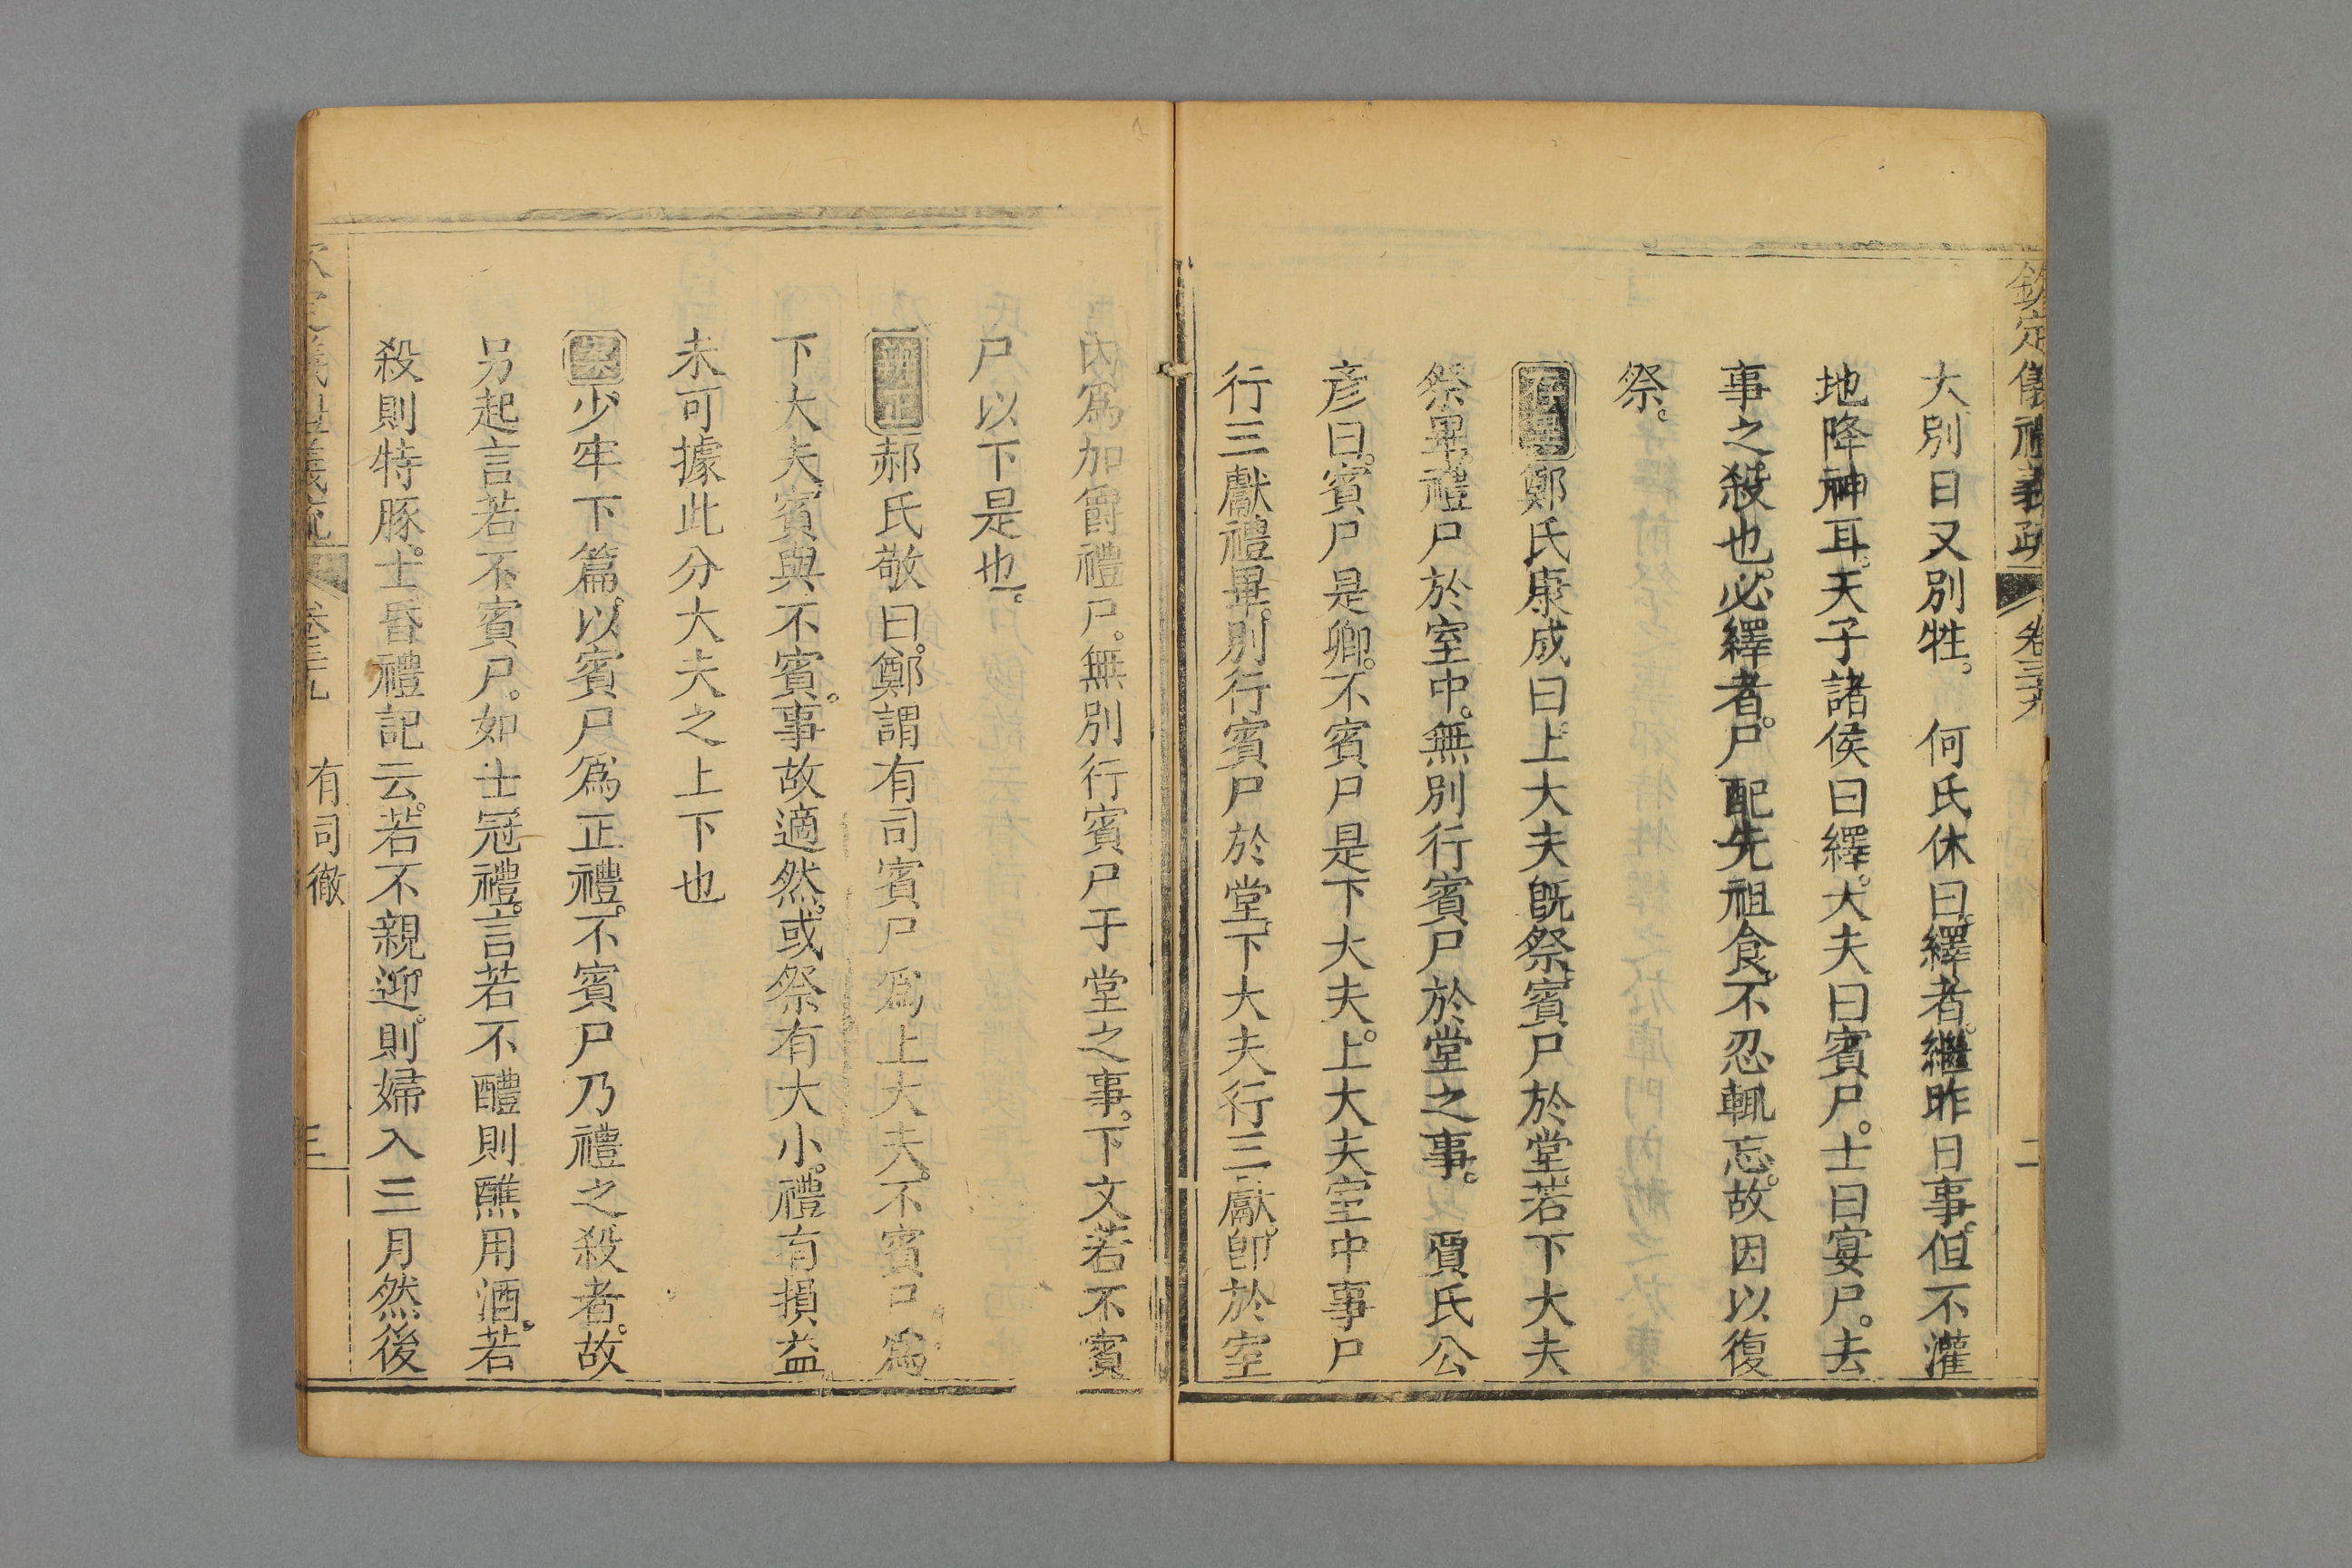 欽定儀禮義疏 卷三十九 二
大別日又別牲。 何氏休曰。繹者。繼昨日事。但不灌
地降神耳。天子諸侯曰繹。大夫曰賓尸。士曰宴尸。去
事之殺也。必繹者。尸配先祖食。不忍輒忘。故因以復
祭。
存異鄭氏康成曰。上大夫旣祭。賓尸於堂。若下大夫
祭畢。禮尸於室中。無別行賓尸於堂之事。 賈氏公
彥曰。賓尸是卿。不賓尸是下大夫。上大夫室中事尸
行三獻禮畢。別行賓尸於堂。下大夫行三獻。卽於室
內爲加爵禮尸。無別行賓尸于堂之事。下文若不賓
尸以下是也。
辨正郝氏敬曰。鄭謂有司賓尸爲上大夫。不賓尸。爲
下大夫。賓與不賓。事故適然。或祭有大小。禮有損益
未可據此分大夫之上下也
案少牢下篇。以賓尸爲正禮。不賓尸乃禮之殺者。故
另起言若不賓尸。如士冠禮。言若不醴則醮用酒。若
殺則特豚。士昏禮記云。若不親迎。則婦入三月然後
欽定儀禮義疏 卷三十九 有司徹 三